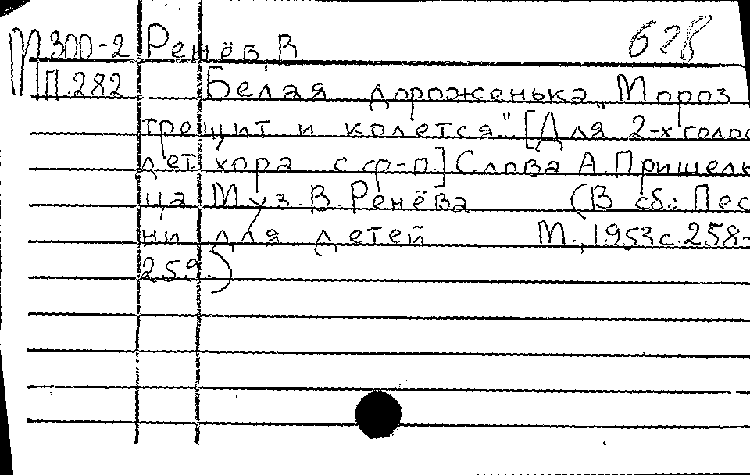 М300-2 Ренёв, В 628
П 282 Белая дороженька „Мороз
трещит и колется" [Для 2-х голос
дет хора с ф-п] Слова А. Пришель
ца Муз. В. Ренёва (В сб.: Пес
ни для детей М., 1953 с. 258-
259.)